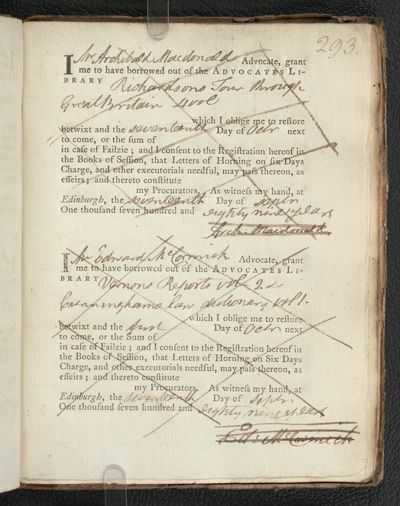 293.
I Mr Archibald Macdonald Advocate, grant
me to have borrowed out of the ADVOCATES LI-
BRARY Richardsons Tour through
Great Britain 4 vol
which I oblige me to restore
betwixt and the seventeenth Day of Octr next
to come, or the sum of
in case of Failzie ; and I consent to the Registration hereof in
the Books of Session, that Letters of Horning on six Days
Charge, and other executorials needful, may pass thereon, as
effeirs ; and thereto constitute
my Procurators. As witness my hand, at
Edinburgh, the seventeenth Day of Septr
One thousand seven hundred and eighty nine years
Archd Macdonald
I Mr Edward McCormick Advocate, grant
me to have borrowed out of the ADVOCATES LI-
BRARY Vernons Reports vol 2d
Cunninghams Law dictionary vol 1.
which I oblige me to restore
betwixt and the Day of Octr next
to come, or the Sum of
in case of Failzie ; and I consent to the Registration hereof in
the Books of Session, that Letters of Horning on Six Days
Charge, and other executorials needful, may pass thereon, as
effeirs ; and thereto constitute
my Procurators. As witness my hand, at
Edinburgh, the seventeenth Day of Septr
One thousand seven hundred and eighty nine years
Ed. McCormick